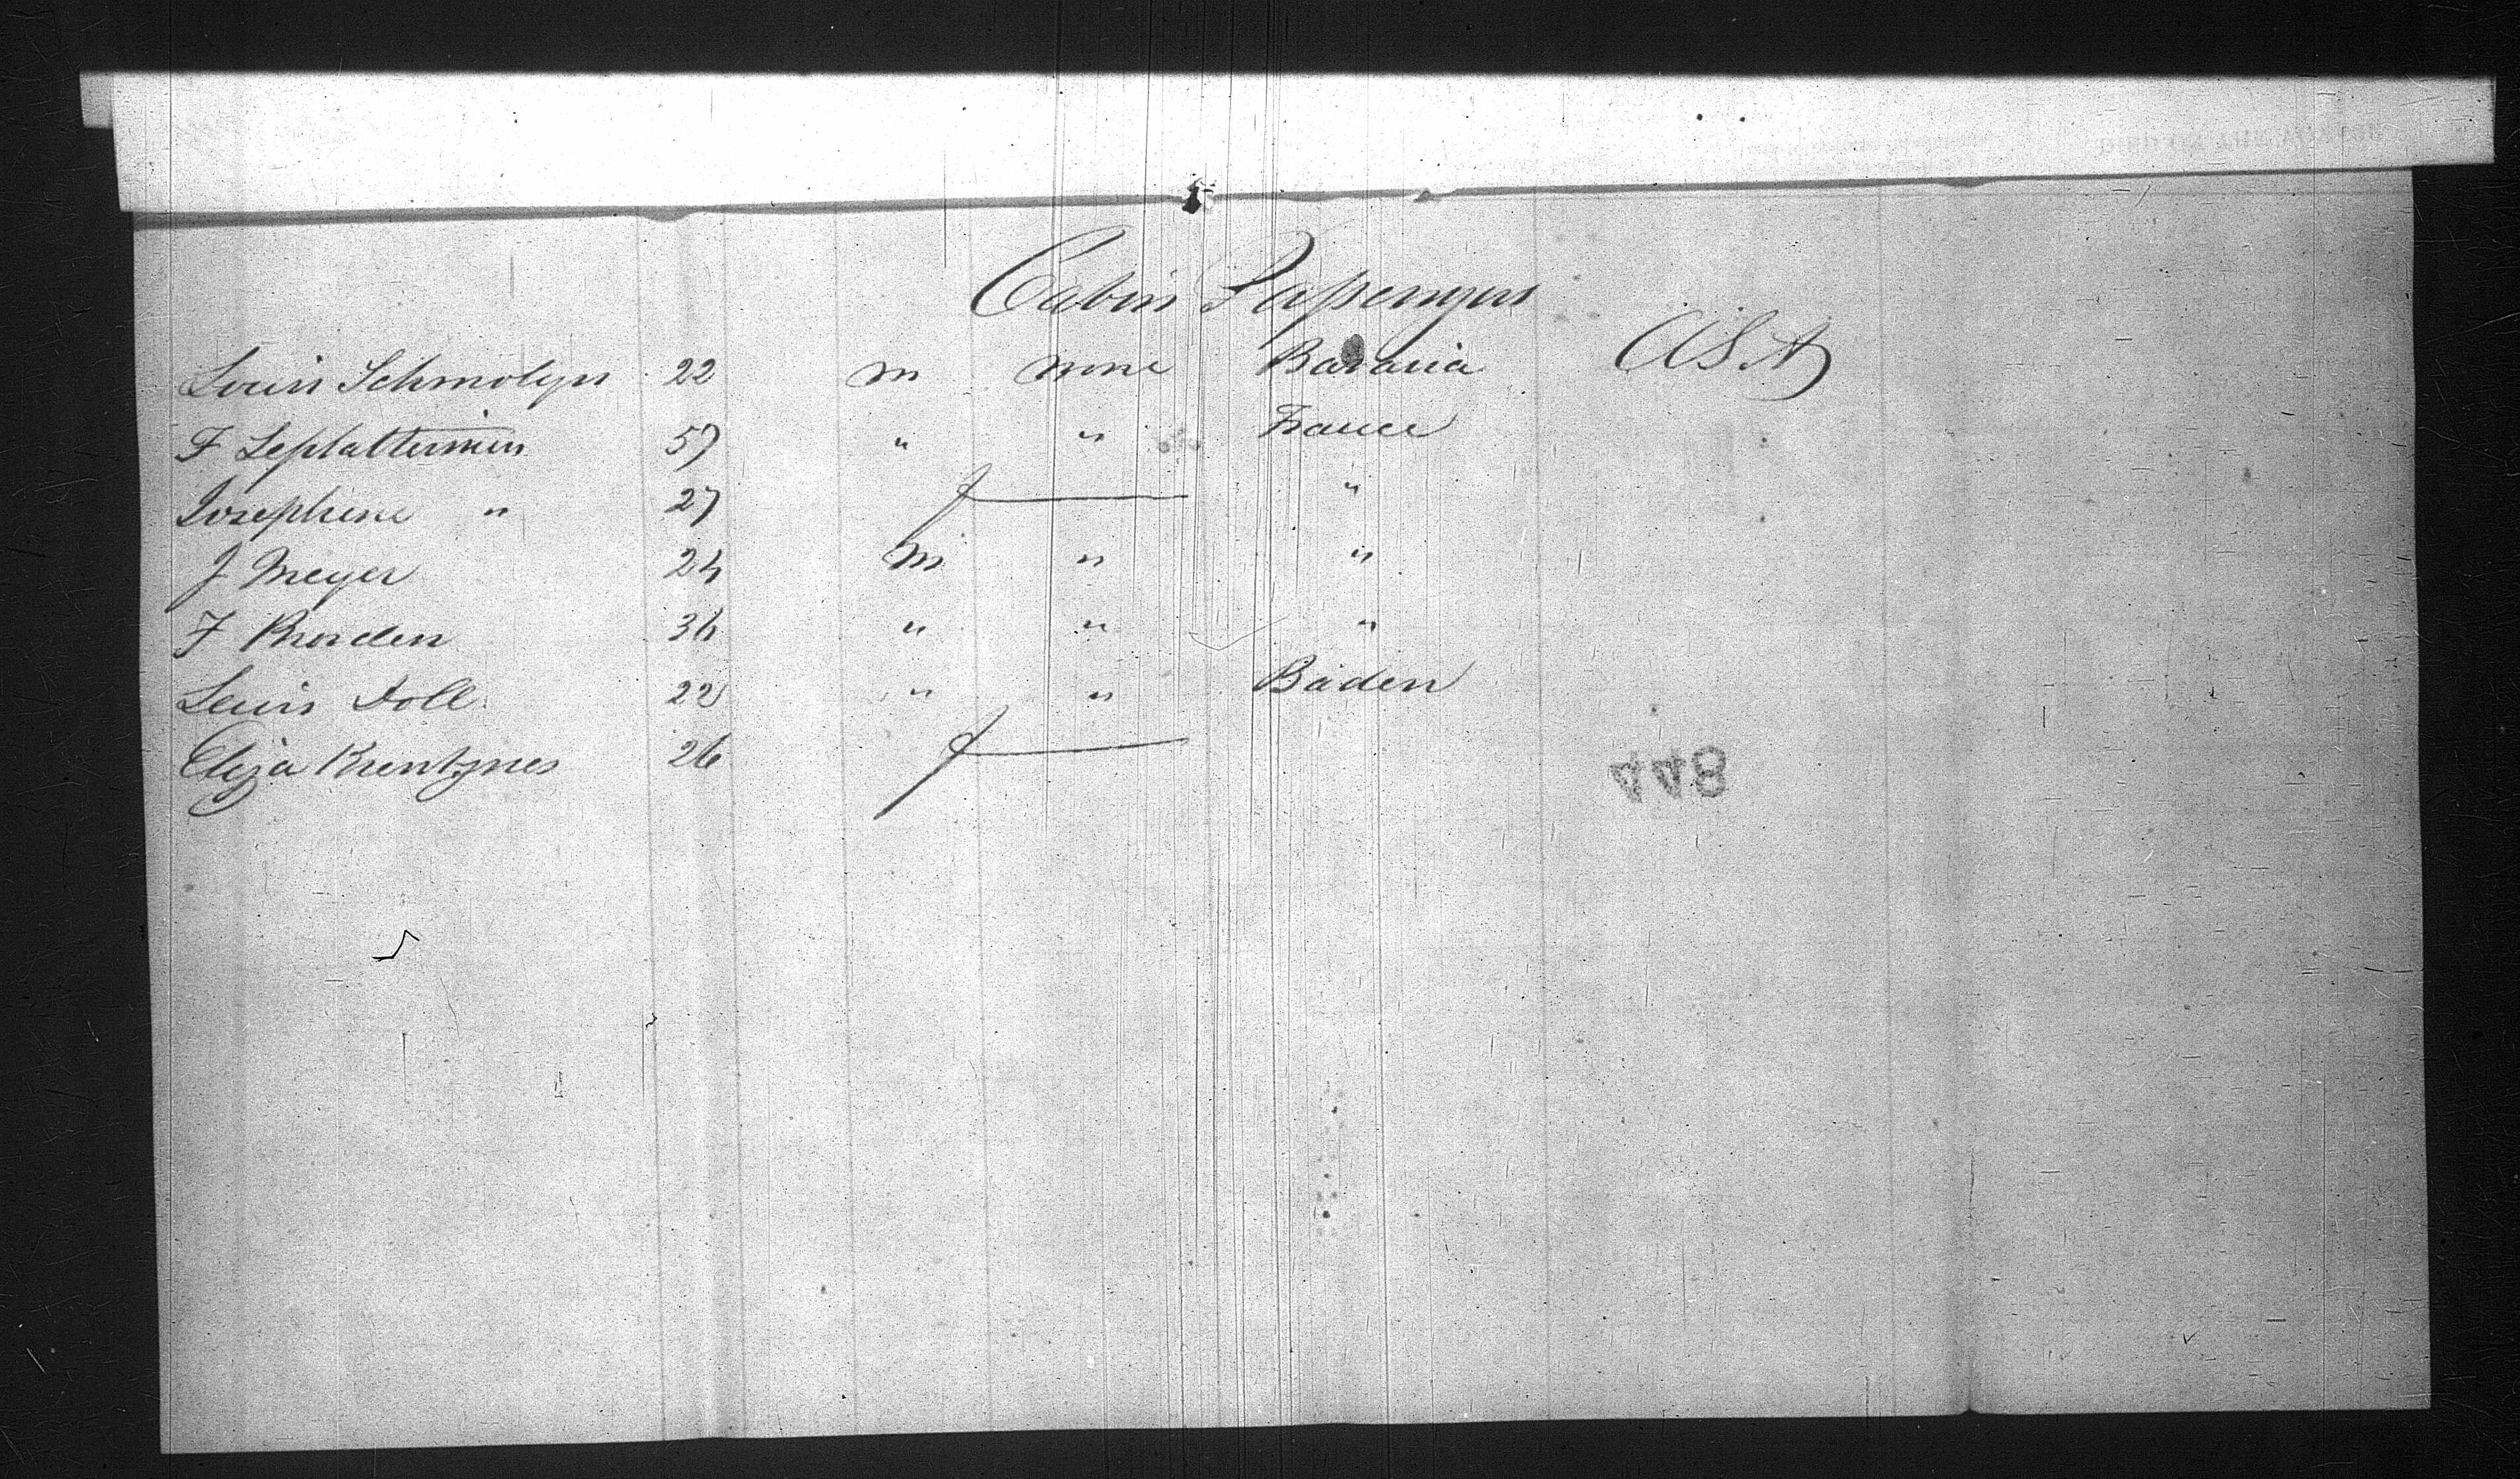 Cabin Passengers
Louis Schmolyn 22 m none Bavaria USA
F Leplattenier 57 " " France
Josephine " 27 f "
J Meyer 24 m " "
F Borden 36 " " "
Louis Doll 22 " " Baden
Eliza 26 f
448